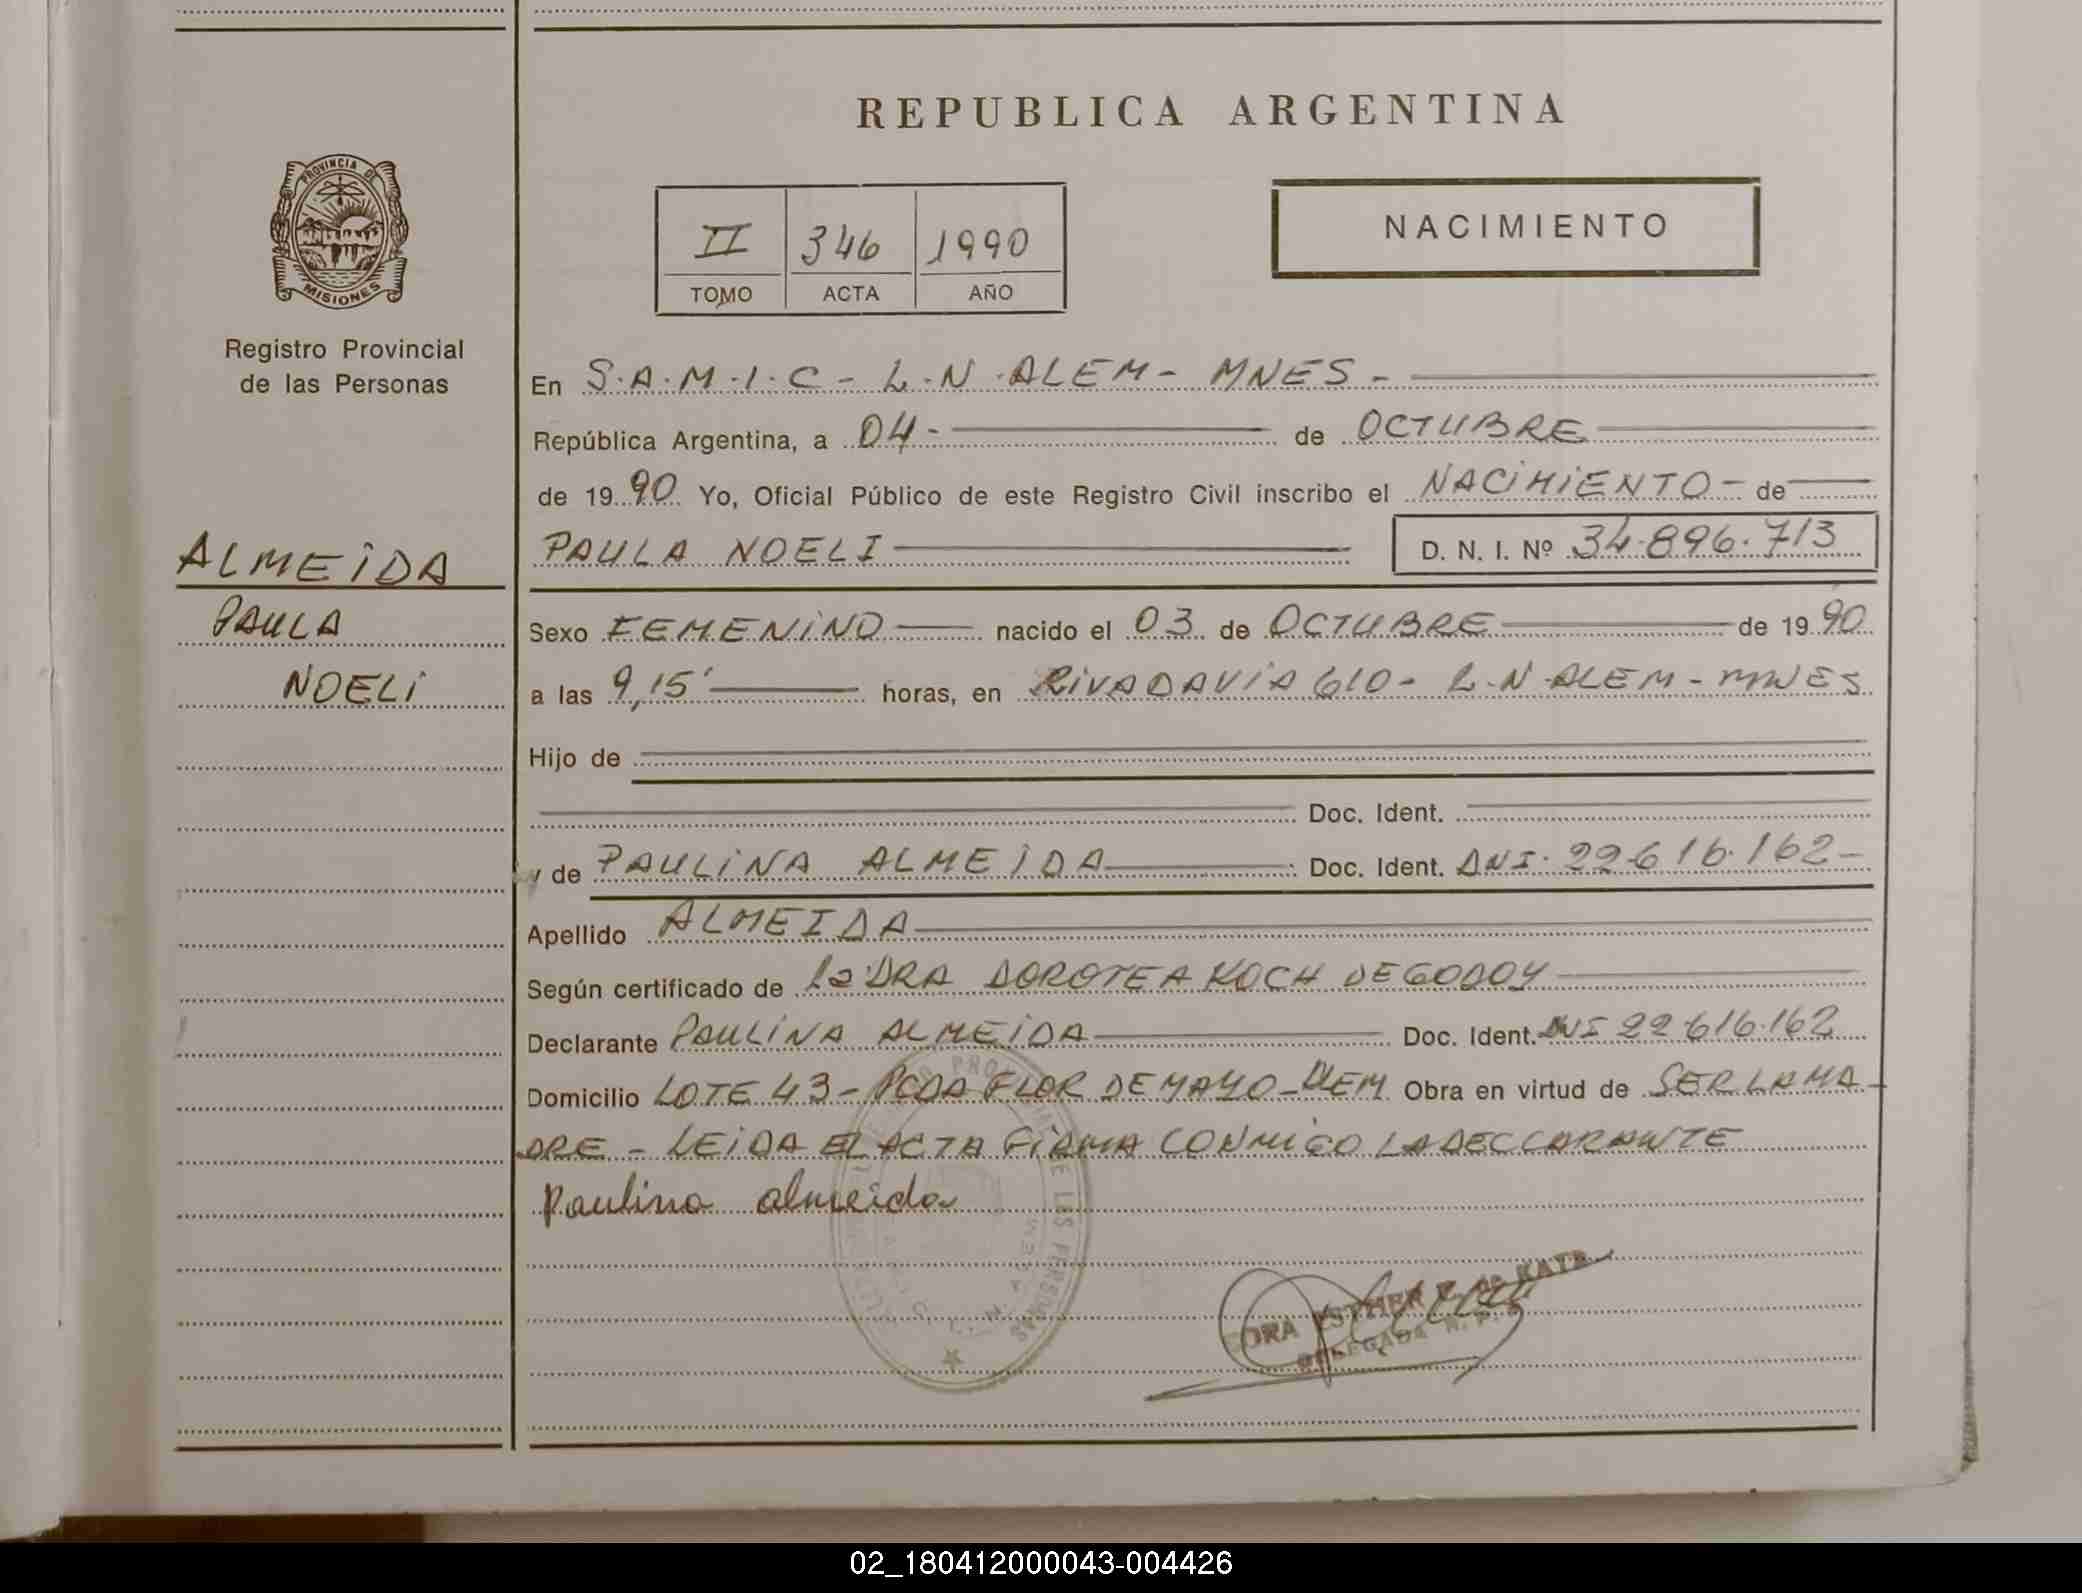 REPUBLICA ARGENTINA
PROVINCIA DE
MISIONES
Registro Provincial
de las Personas
II 346 1990
TOMO ACTA AÑO
NACIMIENTO
En S.A.M.I.C - L.N.ALEM - MNES -
República Argentina, a 04 - de OCTUBRE
de 1990 Yo, Oficial Público de este Registro Civil inscribo el NACIMIENTO - de
PAULA NOELI D. N. I. Nº 34.896.713
ALMEIDA
PAULA
NOELI
Sexo FEMENINO nacido el 03 de OCTUBRE de 1990
a las 9,15' horas, en RIVADAVIA 610 - L.N.ALEM - MNES
Hijo de
Doc. Ident.
y de PAULINA ALMEIDA Doc. Ident. DNI. 22.616.162 -
Apellido ALMEIDA
Según certificado de la DRA DOROTEA KOCH DE GODOY
Declarante PAULINA ALMEIDA Doc. Ident. DNI 22.616.162
Domicilio LOTE 43 - PCDA FLOR DE MAYO - ALEM Obra en virtud de SER LA MA
DRE - LEIDA EL ACTA FIRMA CONMIGO LA DECLARANTE
Paulina almeida
DORA ESTHER de KATZ
DELEGADA R. P.
02_180412000043-004426